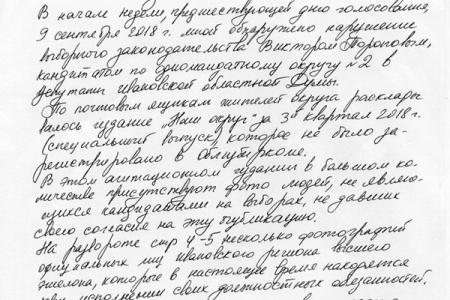 В начале недели, предшествующей дню голосования,
9 сентября 2018 г. мной обнаружено нарушение
выборного законодательства Виктором Тороповым,
кандидатом по одномандатному округу №2 в
депутаты Ивановской областной Думы.
По почтовым ящикам жителей округа расклады-
валось издание „Наш округ" за 3й квартал 2018 г.
(специальный выпуск), которое не было за-
регистрировано в Облизбиркоме.
В этом агитационном издании в большом ко-
личестве присутствуют фото людей, не являю-
щихся кандидатами на выборах, не давших
своего согласие на эту публикацию.
На развороте стр 4-5 несколько фотографий
официальных лиц Ивановского региона высшего
эшелона, которые в настоящее время находятся
при исполнении своих должностных обязанностей.